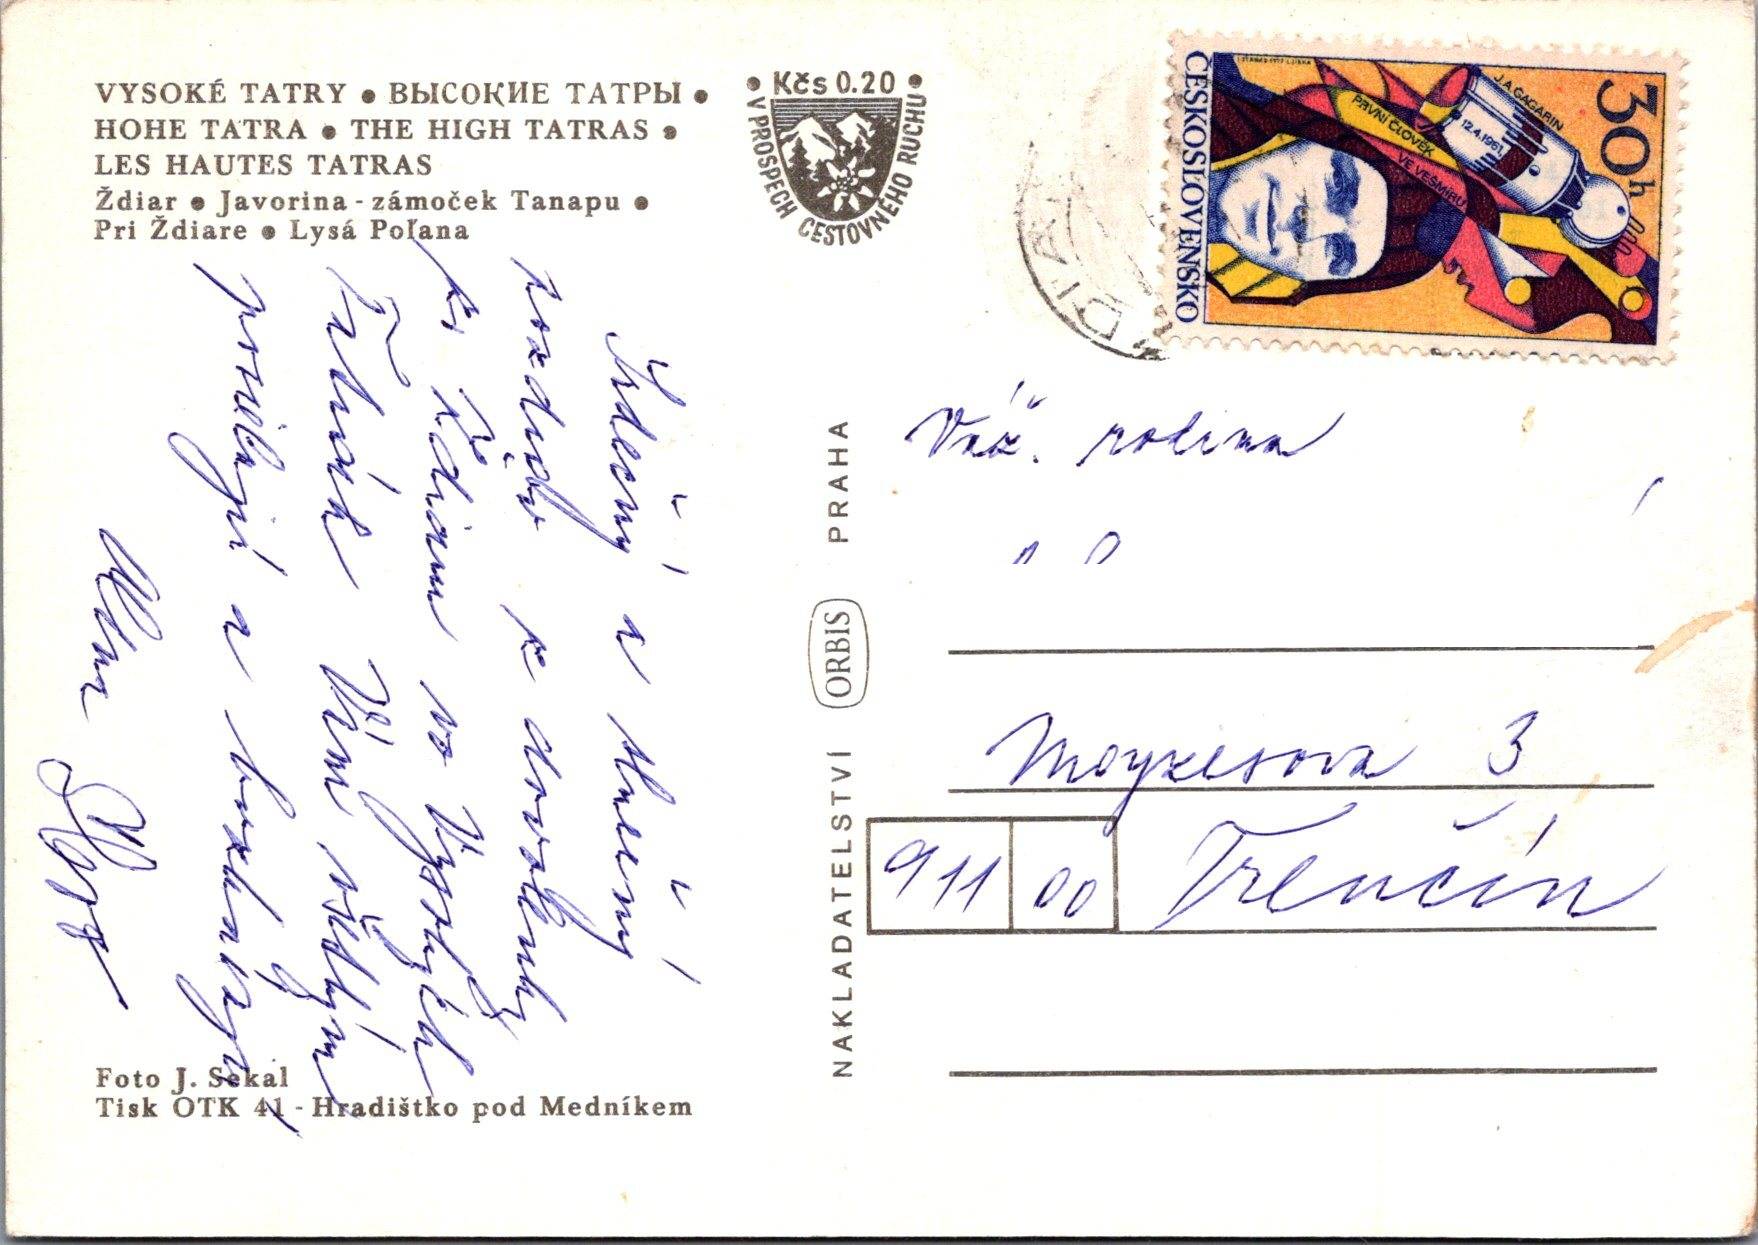 VYSOKÉ TATRY • ВЫСОКИЕ ТАТРЫ •
HOHE TATRA • THE HIGH TATRAS •
LES HAUTES TATRAS
Ždiar • Javorina - zámoček Tanapu •
Pri Ždiare • Lysá Poľana
• Kčs 0.20 •
V PROSPECH CESTOVNÉHO RUCHU
ČESKOSLOVENSKO
30h
J. A. GAGARIN
12.4.1961
PRVNÍ ČLOVĚK
VE VESMÍRU
Srdečný a slnečný
pozdrav z dovolenky
zo Ždiaru vo Vysokých
Tatrách Vám všetkým
posielajú a
Váž. rodina
Moyzesova 3
911 00 Trenčín
NAKLADATELSTVÍ ORBIS PRAHA
Foto J. Sekal
Tisk OTK 41 - Hradištko pod Medníkem